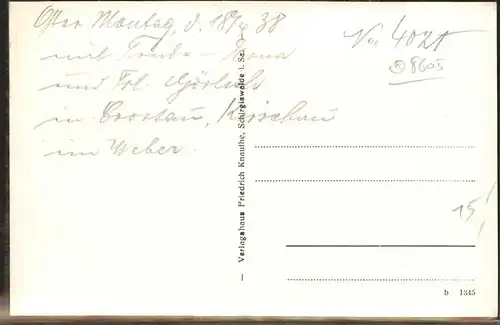 Oster Montag, d. 18/4 38
mit Trude - Erna
und Frl. Görlach
in Crostau, Kirschau
im Weber.
— Verlagshaus Friedrich Knauthe, Schirgiswalde i. Sa. —
8605
15,
b 1345